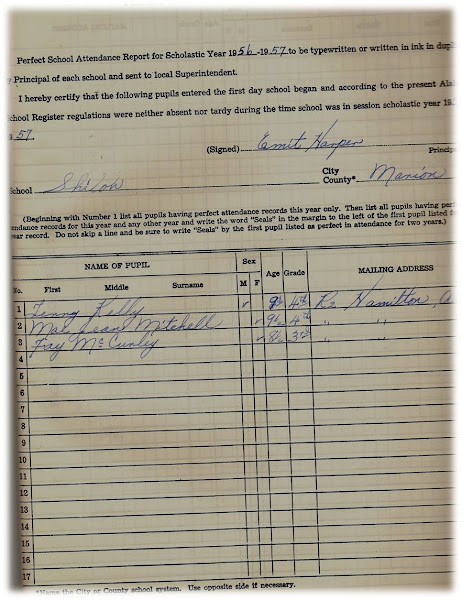 Perfect School Attendance Report for Scholastic Year 1956-1957 to be typewritten or written in ink in
Principal of each school and sent to local Superintendent.
I hereby certify that the following pupils entered the first day school began and according to the present
School Register regulations were neither absent nor tardy during the time school was in session scholastic year
57.
(Signed) Emit Harper
School Shiloh City County*. Marion
(Beginning with Number 1 list all pupils having perfect attendance records this year only. Then list all pupils having
records for this year and any other year and write the word "Seals" in the margin to the left of the first pupil listed
record. Do not skip a line and be sure to write "Seals" by the first pupil listed as perfect in attendance for two years.)
NAME OF PUPIL Sex Age Grade MAILING ADDRESS
No. First Middle Surname M F
1 Kelly ✓ 9½ 4th Hamilton,
2 Mary Jean Mitchell ✓ 9½ 4th " "
3 Fay McCurley ✓ 8½ 3rd " "
4
5
6
7
8
9
10
11
12
13
14
15
16
17
*Name the City or County school system. Use opposite side if necessary.